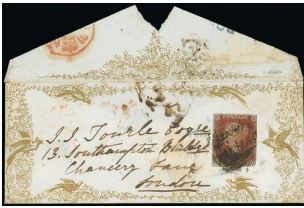 POSTAGE
J. J. Tourle Esqre
13. Southampton Builds
Chancery Lane
London